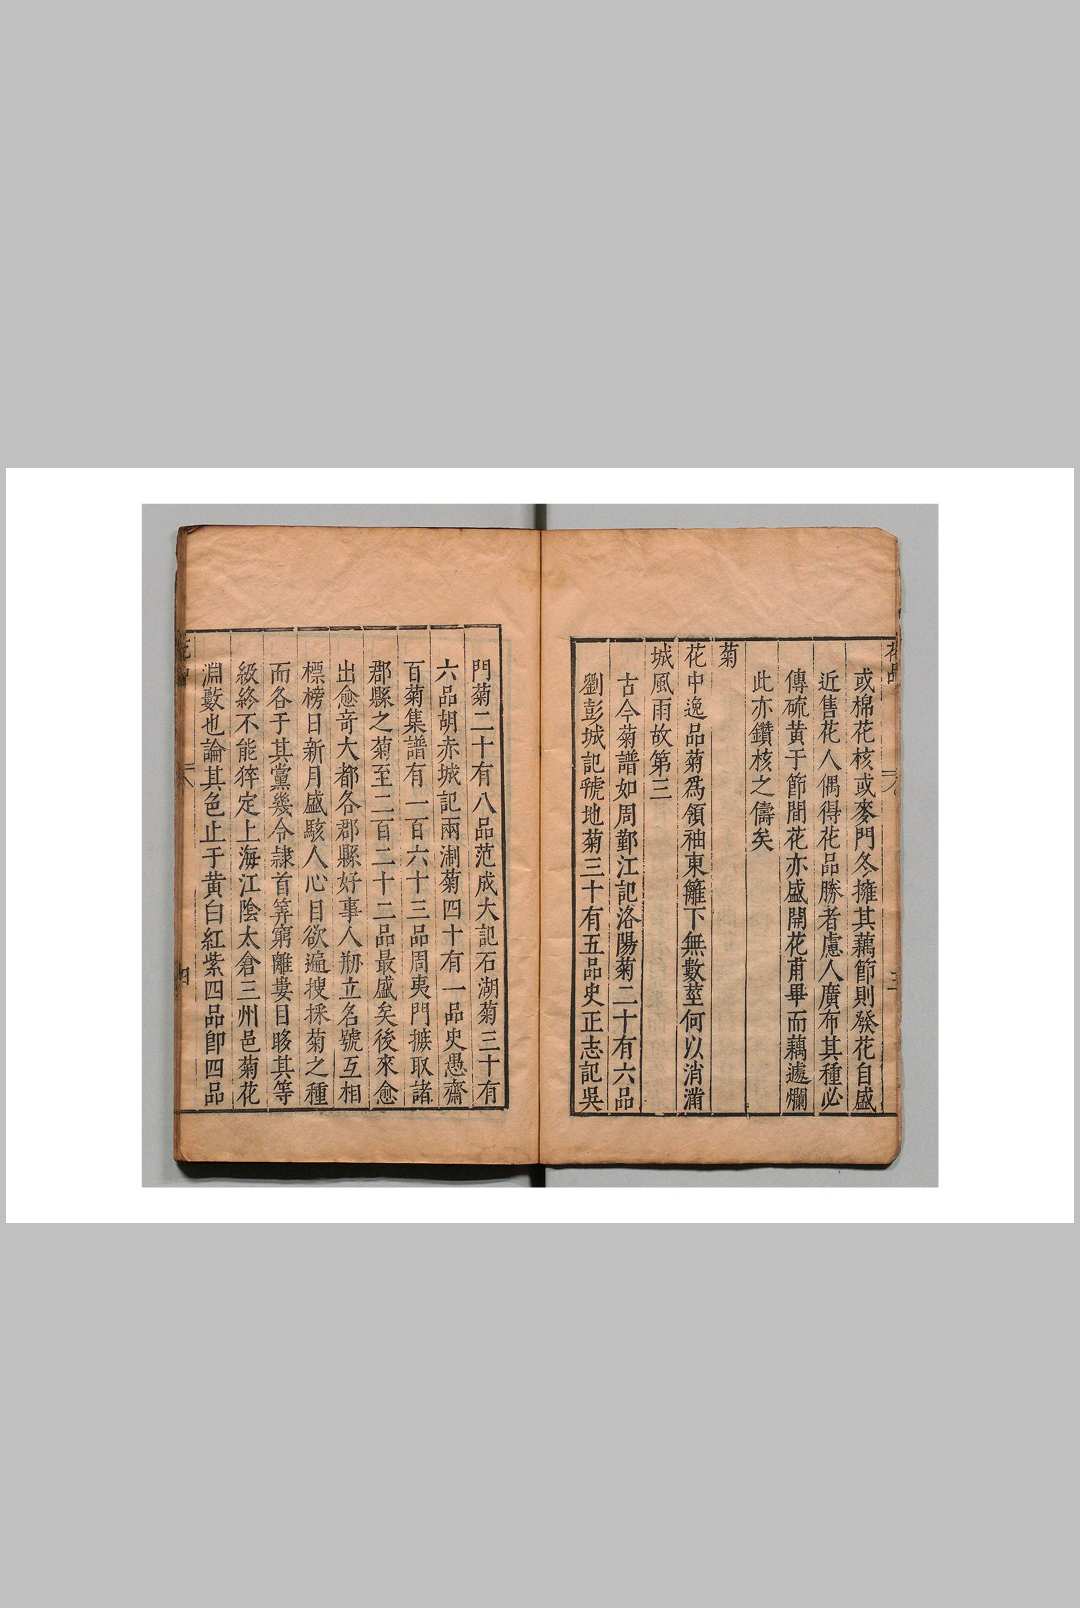 或棉花核或麥門冬擁其藕節則發花自盛
近售花人偶得花品勝者慮人廣布其種必
傳硫黃于節間花亦盛開花甫畢而藕遽爛
此亦鑽核之儔矣
菊
花中逸品菊爲領袖東籬下無數莖何以消滿
城風雨故第三
古今菊譜如周鄞江記洛陽菊二十有六品
劉彭城記虢地菊三十有五品史正志記吳
門菊二十有八品范成大記石湖菊三十有
六品胡赤城記兩淛菊四十有一品史愚齋
百菊集譜有一百六十三品周夷門摭取諸
郡縣之菊至二百二十二品最盛矣後來愈
出愈奇大都各郡縣好事人剏立名號互相
標榜日新月盛駭人心目欲遍搜採菊之種
而各于其黨幾令隷首筭窮離婁目眵其等
級終不能猝定上海江陰太倉三州邑菊花
淵藪也論其色止于黃白紅紫四品卽四品
四